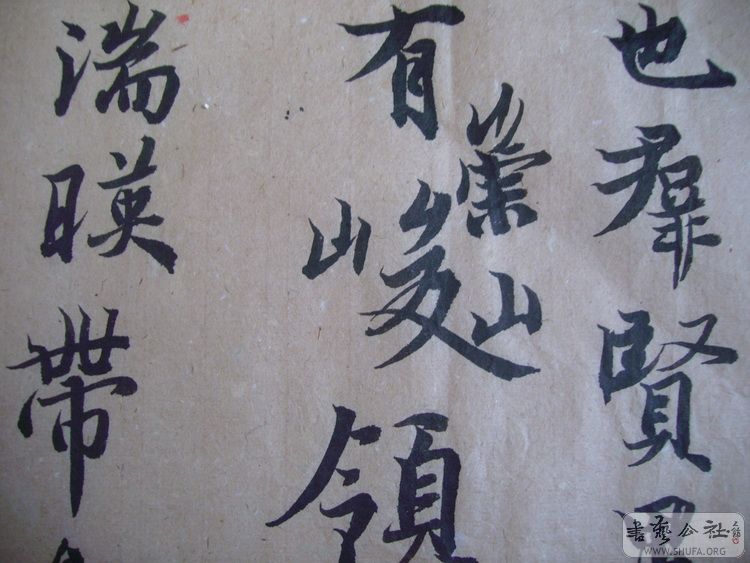 也羣賢
有崇山峻領
湍暎帶
書藝公社
WWW.SHUFA.ORG